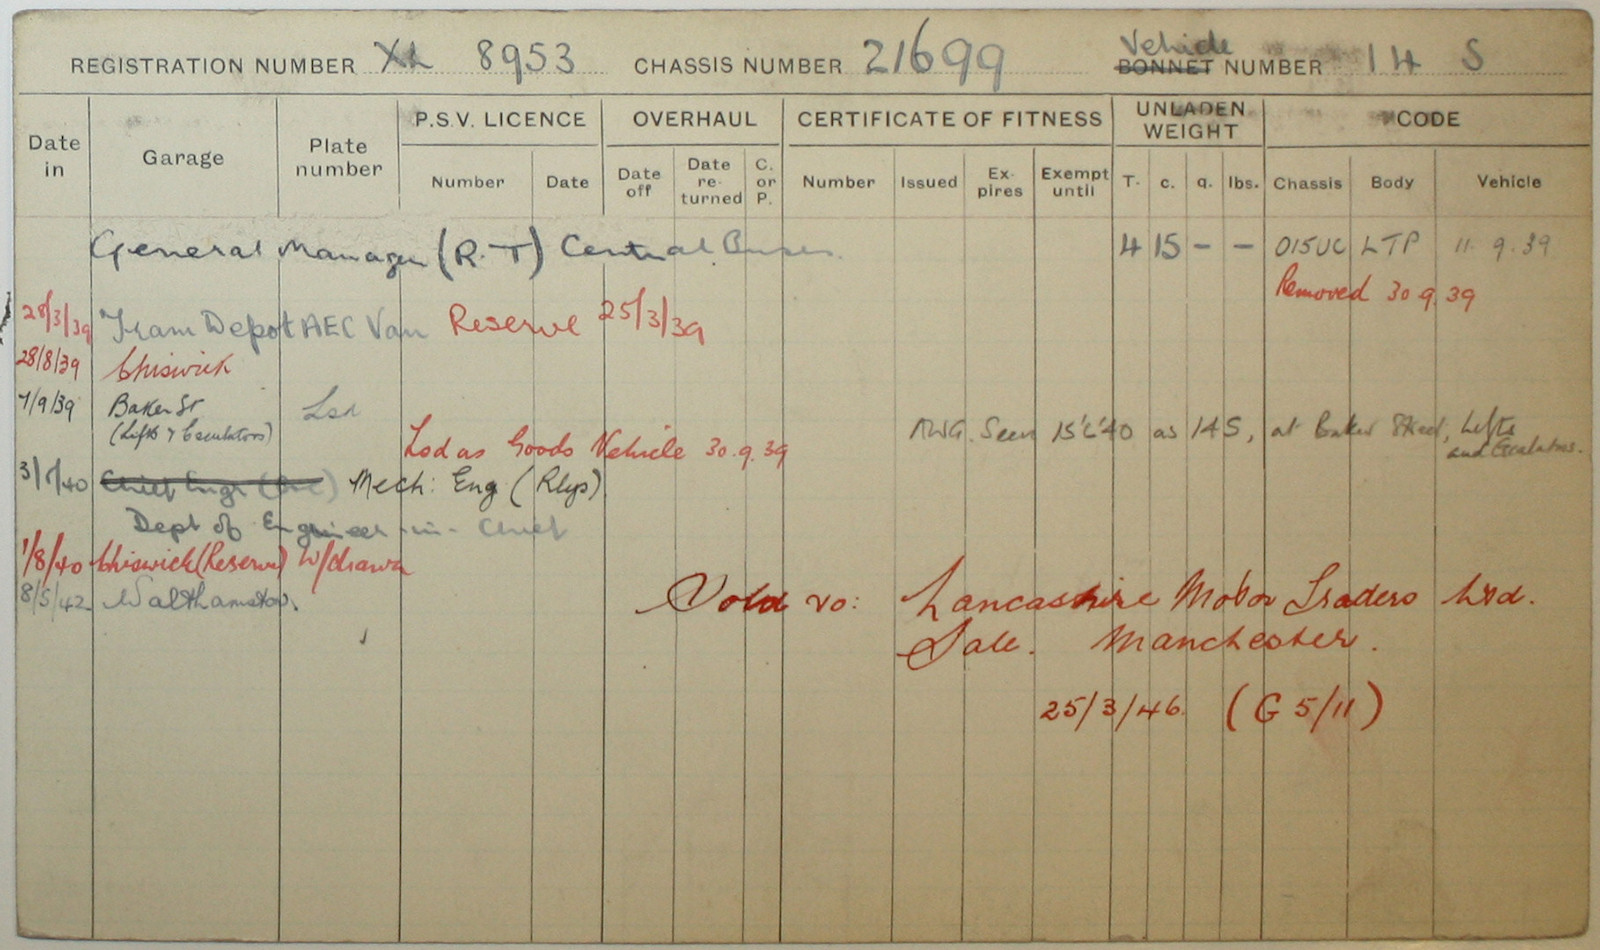 REGISTRATION NUMBER XL 8953 CHASSIS NUMBER 21699 Vehicle BONNET NUMBER 14 S
Date in Garage Plate number P.S.V. LICENCE OVERHAUL CERTIFICATE OF FITNESS UNLADEN WEIGHT CODE
Number Date Date off Date re-turned C. or P. Number Issued Ex-pires Exempt until T. c. q. lbs. Chassis Body Vehicle
General Manager (R.T) Central Buses 4 15 - - 015UC LTP 11.9.39
Removed 30.9.39
28/3/39 Tram Depot AEC Van Reserve 25/3/39
28/8/39 Chiswick
7/9/39 Baker St Lsd
(Lifts & Escalators)
Lsd as Goods Vehicle 30.9.39
Seen 15'6'40 as 14S, at Baker Street, Lifts and Escalators.
3/7/40 Chief Engr Mech: Eng (Rlys)
Dept of Engineer-in-Chief
1/8/40 Chiswick (Reserve) W/drawn
8/5/42 Walthamstow.
Sold to: Lancashire Motor Traders Ltd.
Sale. Manchester.
25/3/46. (G 5/11)